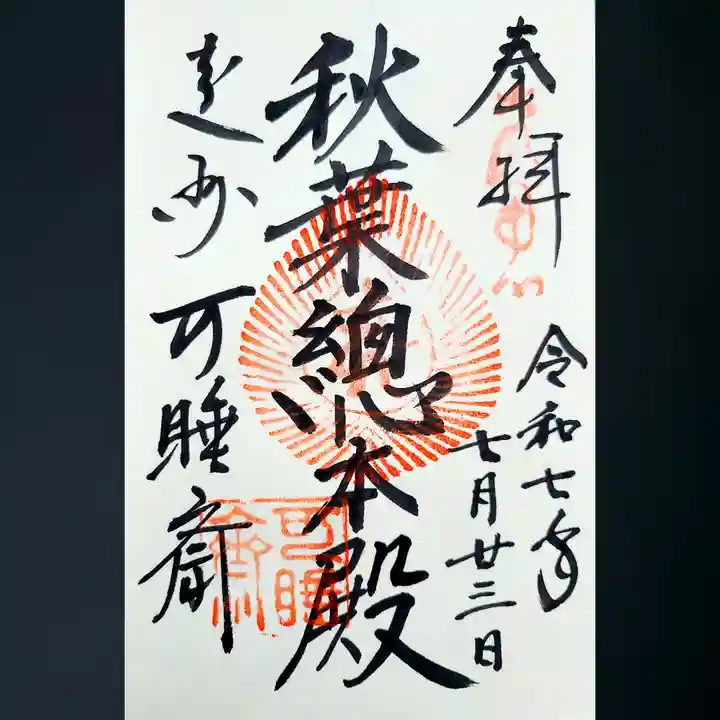 奉拝
令和七年
七月廿三日
秋葉總本殿
遠州 可睡齋
可睡齋